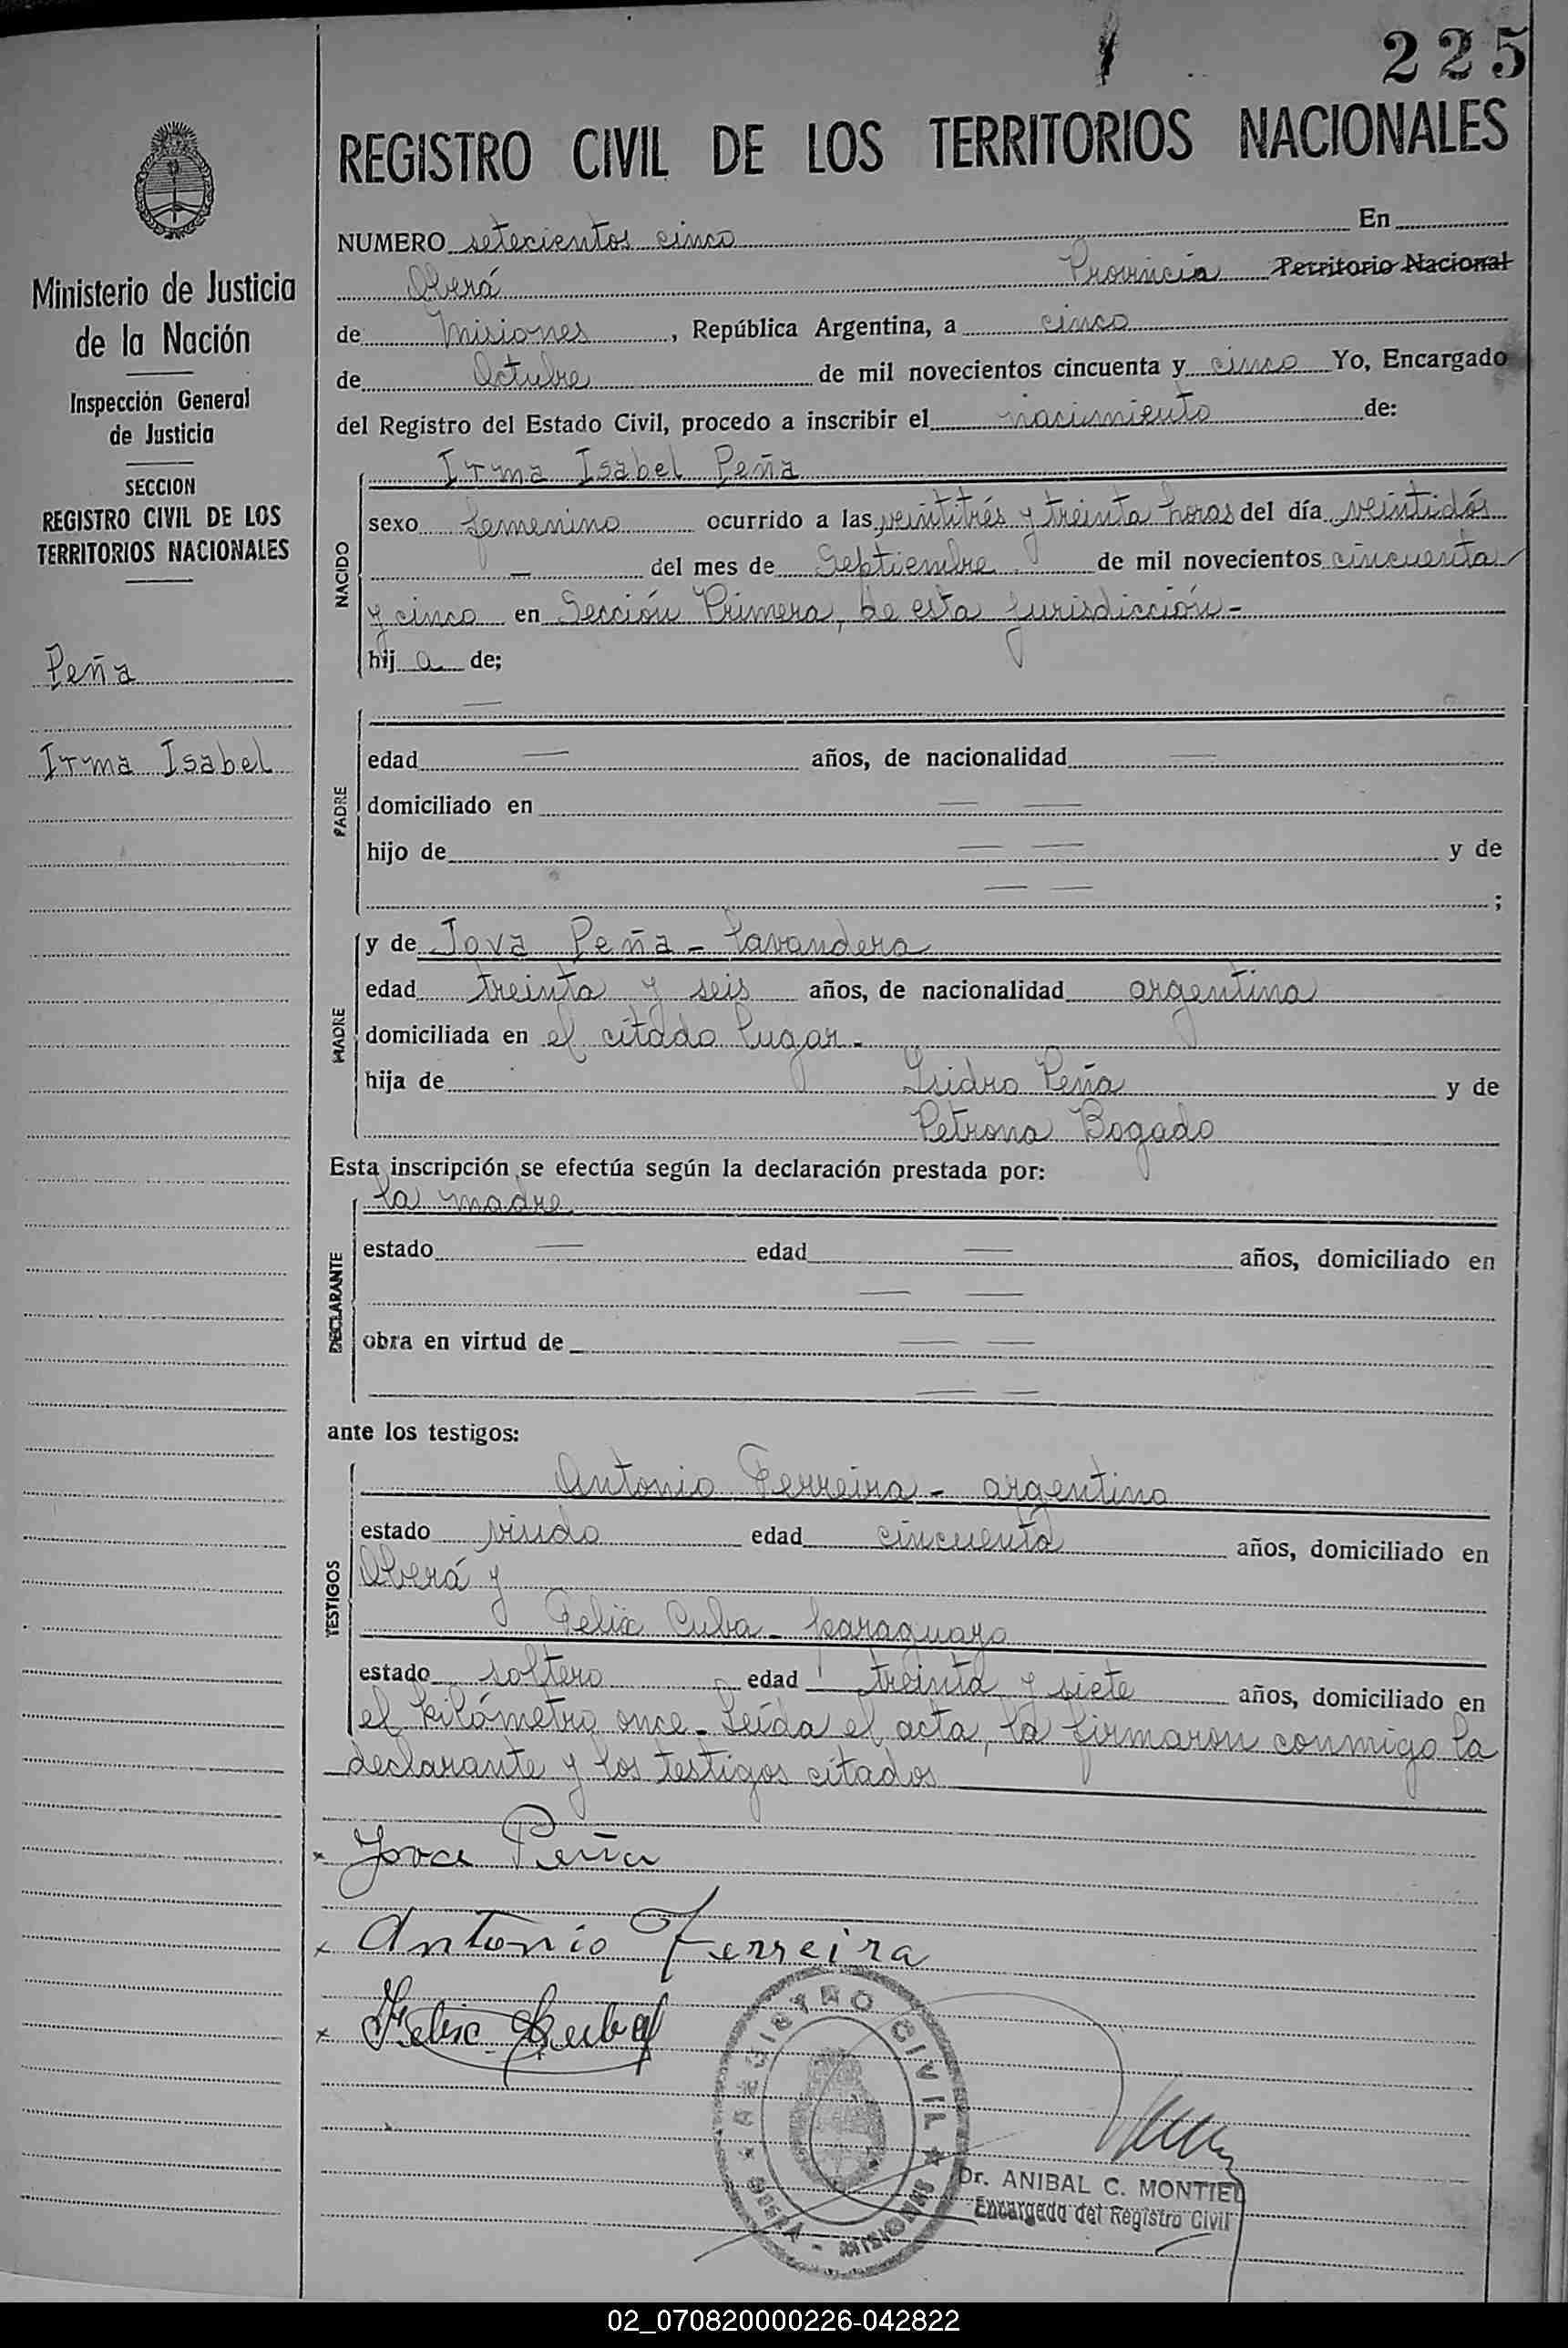 225
REGISTRO CIVIL DE LOS TERRITORIOS NACIONALES
Ministerio de Justicia
de la Nación
Inspección General
de Justicia
SECCION
REGISTRO CIVIL DE LOS
TERRITORIOS NACIONALES
Peña
Irma Isabel
NUMERO setecientos cinco En
Oberá Provincia Territorio Nacional
de Misiones, República Argentina, a cinco
de Octubre de mil novecientos cincuenta y cinco Yo, Encargado
del Registro del Estado Civil, procedo a inscribir el nacimiento de:
NACIDO
Irma Isabel Peña
sexo femenino ocurrido a las veintitrés y treinta horas del día veintidós
— del mes de Septiembre de mil novecientos cincuenta
y cinco en Sección Primera, de esta jurisdicción.-
hij a de;
PADRE
—
edad — años, de nacionalidad —
domiciliado en — —
hijo de — — y de
— — ;
MADRE
y de Jova Peña - lavandera
edad treinta y seis años, de nacionalidad argentina
domiciliada en el citado lugar.-
hija de Isidro Peña y de
Petrona Bogado
Esta inscripción se efectúa según la declaración prestada por:
DECLARANTE
la madre
estado — edad — años, domiciliado en
— —
obra en virtud de — —
— —
ante los testigos:
TESTIGOS
Antonio Ferreira - argentino
estado viudo edad cincuenta años, domiciliado en
Oberá y
Felix Cuba - paraguayo
estado soltero edad treinta y siete años, domiciliado en
el kilómetro once - Leída el acta, la firmaron conmigo la
declarante y los testigos citados
x Jova Peña
x Antonio Ferreira
x Felix Cuba
REGISTRO CIVIL
OBERA - MISIONES
Dr. ANIBAL C. MONTIEL
Encargado del Registro Civil
02_070820000226-042822